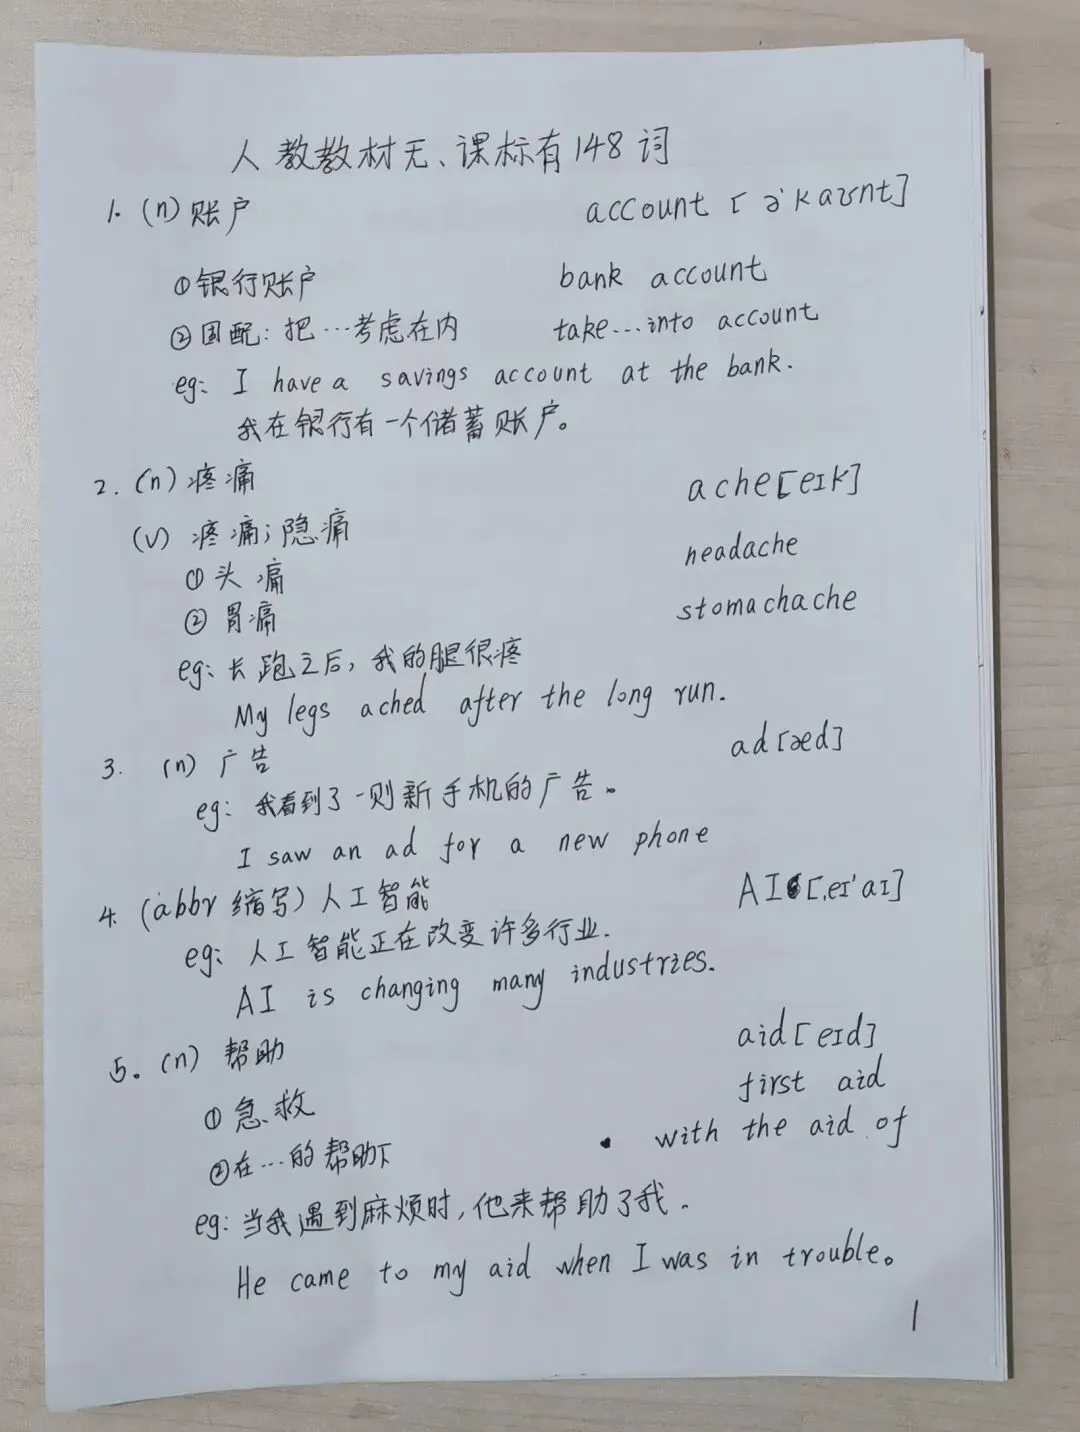 人教教材无、课标有148词
1. (n) 账户 account [ə'kaʊnt]
①银行账户 bank account
②固配: 把…考虑在内 take…into account
eg: I have a savings account at the bank.
我在银行有一个储蓄账户。
2. (n) 疼痛 ache [eɪk]
(v) 疼痛;隐痛
①头痛 headache
②胃痛 stomachache
eg: 长跑之后,我的腿很疼
My legs ached after the long run.
3. (n) 广告 ad [æd]
eg: 我看到了一则新手机的广告。
I saw an ad for a new phone
4. (abbr 缩写) 人工智能 AI [ˌeɪ'aɪ]
eg: 人工智能正在改变许多行业.
AI is changing many industries.
5. (n) 帮助 aid [eɪd]
①急救 first aid
②在…的帮助下 with the aid of
eg: 当我遇到麻烦时,他来帮助了我.
He came to my aid when I was in trouble。
1